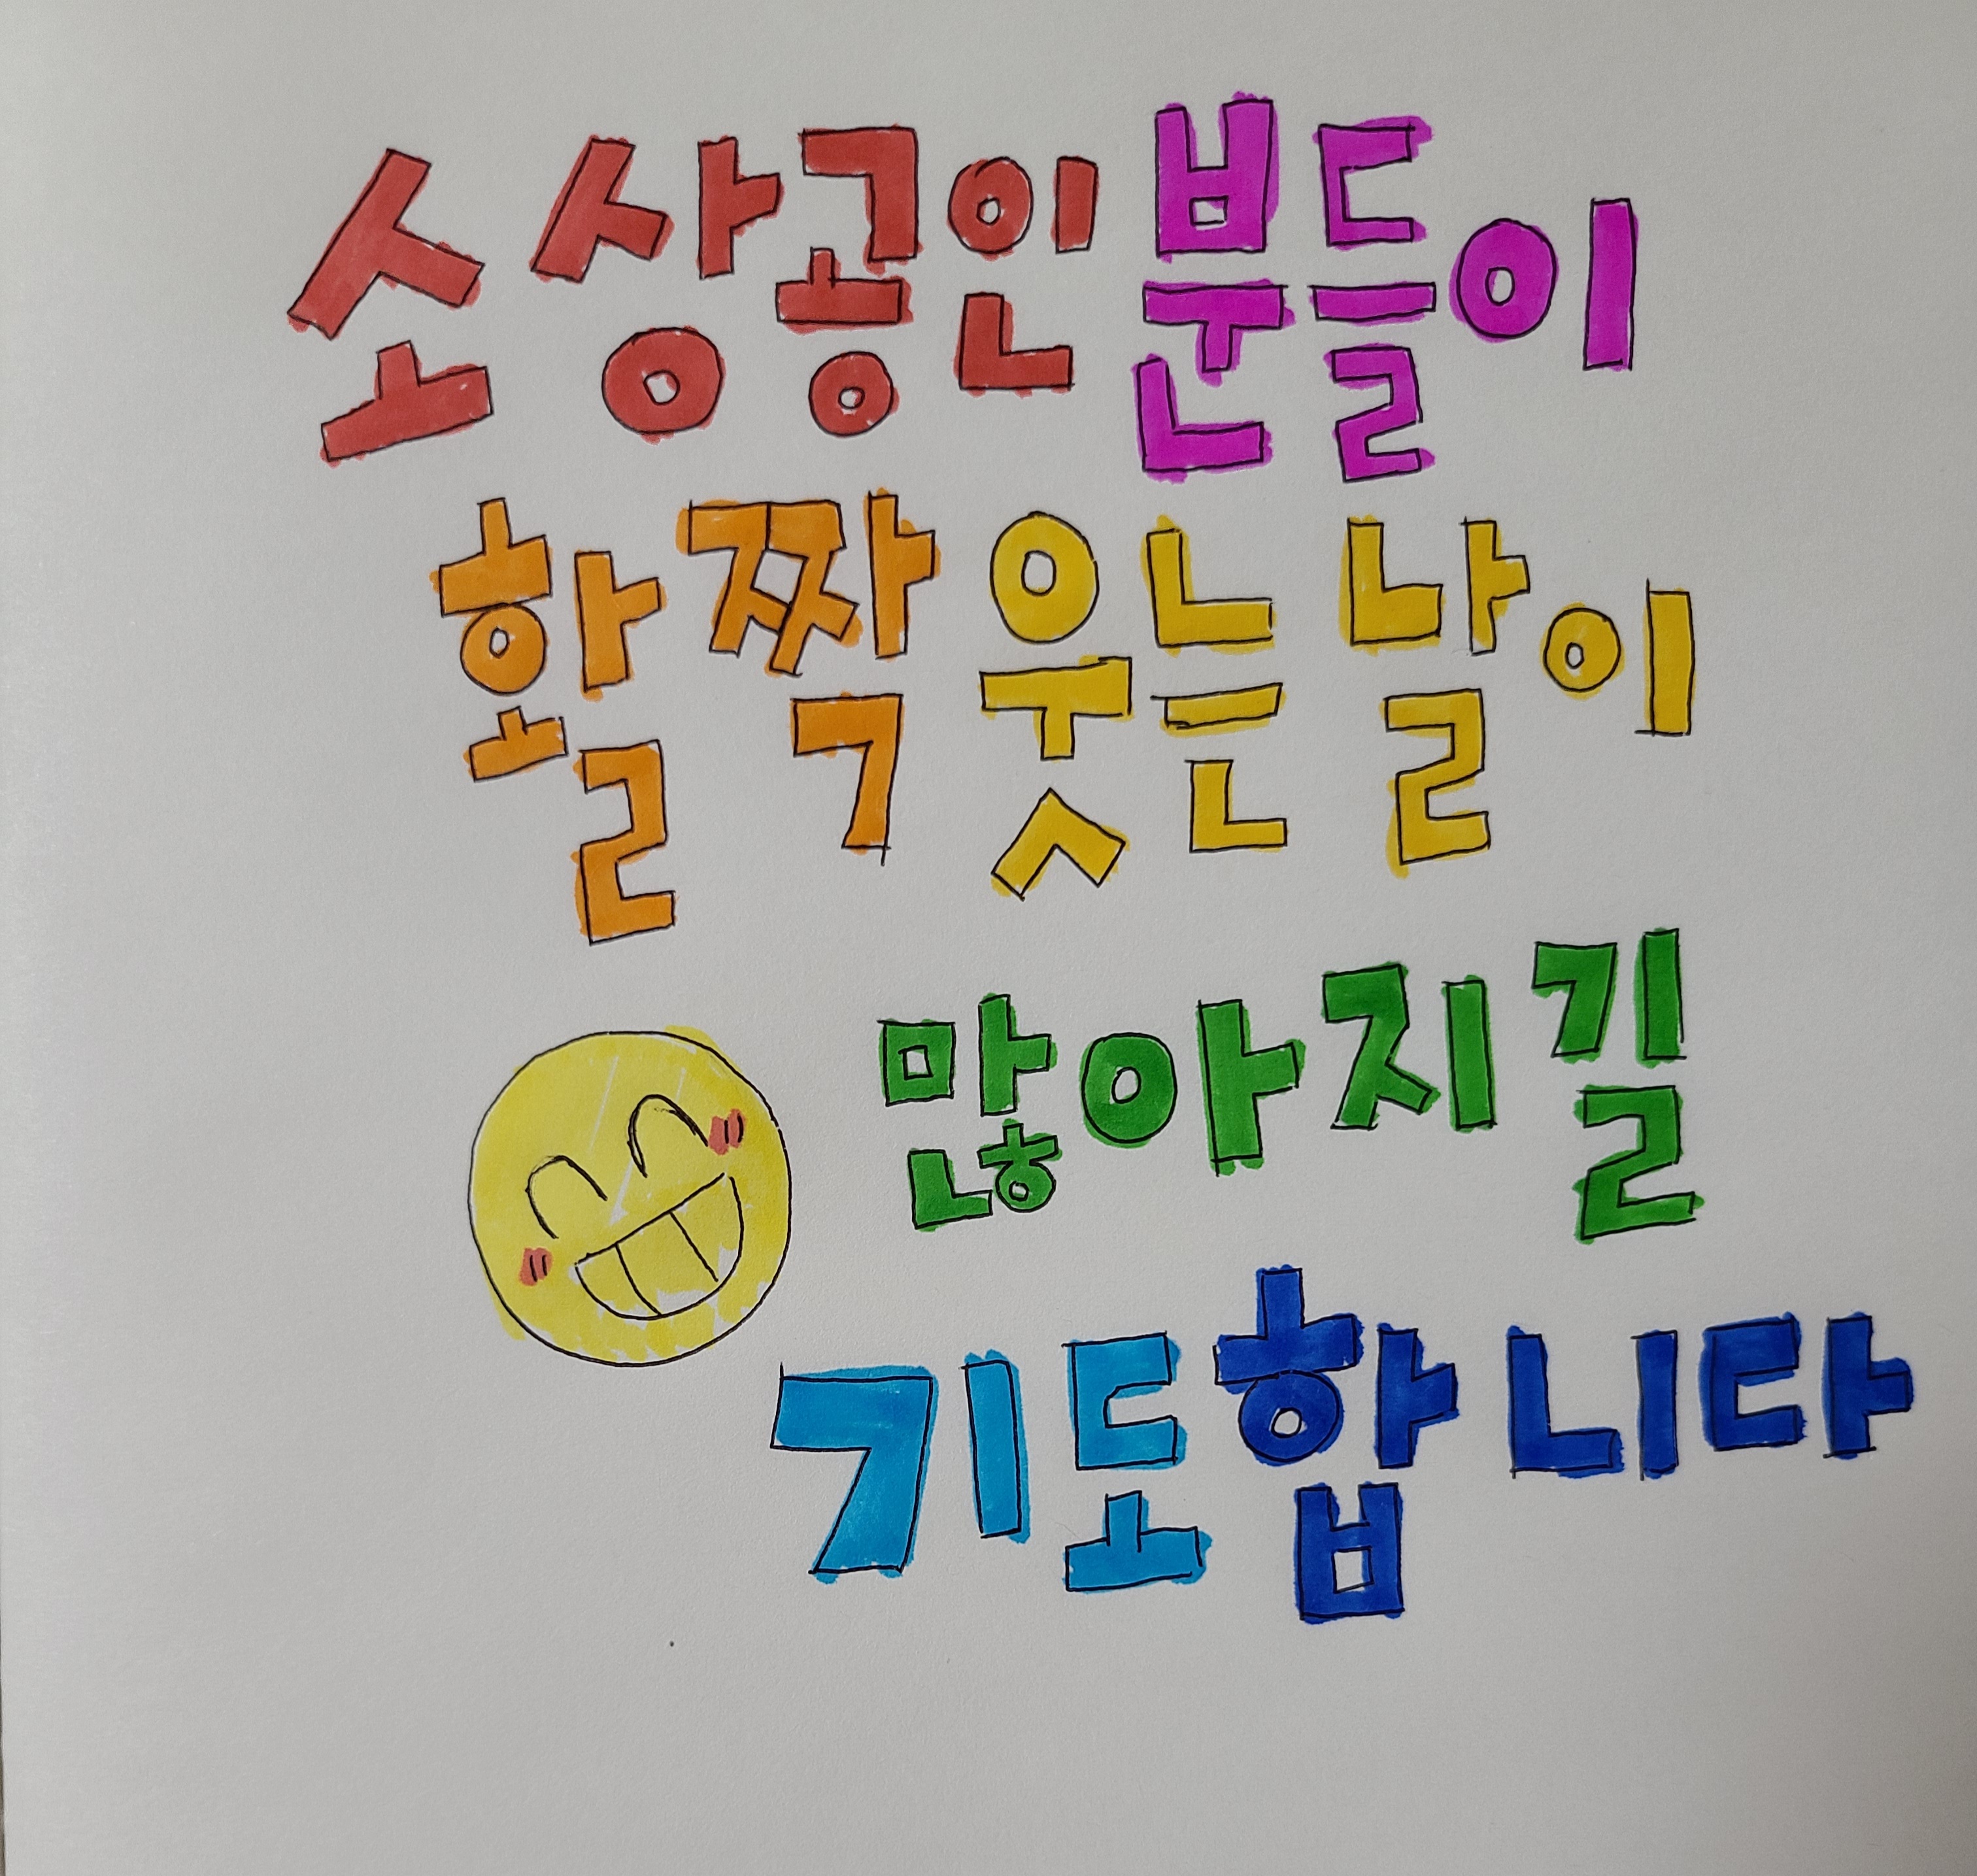 소상공인분들이
활짝 웃는 날이
많아지길
기도합니다